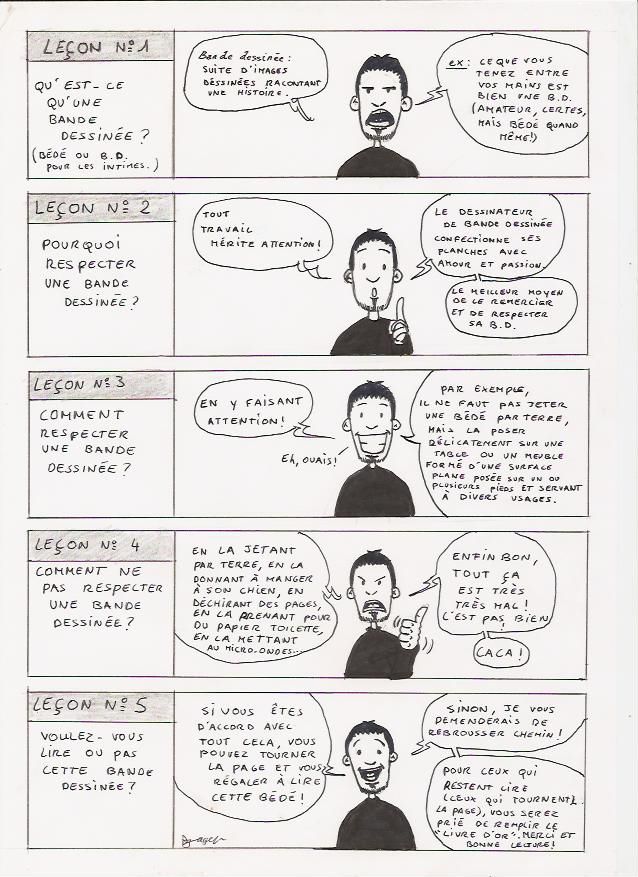 LEÇON Nº1
QU'EST-CE
QU'UNE
BANDE
DESSINÉE ?
(BÉDÉ OU B.D.
POUR LES INTIMES.)
Bande dessinée :
SUITE D'IMAGES
DESSINÉES RACONTANT
UNE HISTOIRE.
ex : CE QUE VOUS
TENEZ ENTRE
VOS MAINS EST
BIEN UNE B.D.
(AMATEUR, CERTES,
MAIS BÉDÉ QUAND
MÊME!)
LEÇON Nº 2
POURQUOI
RESPECTER
UNE BANDE
DESSINÉE ?
TOUT
TRAVAIL
MÉRITE ATTENTION!
LE DESSINATEUR
DE BANDE DESSINÉE
CONFECTIONNE SES
PLANCHES AVEC
AMOUR ET PASSION.
LE MEILLEUR MOYEN
DE LE REMERCIER
EST DE RESPECTER
SA B.D.
LEÇON Nº3
COMMENT
RESPECTER
UNE BANDE
DESSINÉE ?
EN Y FAISANT
ATTENTION!
Eh, ouais!
PAR EXEMPLE,
IL NE FAUT PAS JETER
UNE BÉDÉ PAR TERRE,
MAIS LA POSER
DÉLICATEMENT SUR UNE
TABLE OU UN MEUBLE
FORMÉ D'UNE SURFACE
PLANE POSÉE SUR UN OU
PLUSIEURS PIEDS ET SERVANT
À DIVERS USAGES.
LEÇON Nº 4
COMMENT NE
PAS RESPECTER
UNE BANDE
DESSINÉE ?
EN LA JETANT
PAR TERRE, EN LA
DONNANT À MANGER
À SON CHIEN, EN
DÉCHIRANT DES PAGES,
EN LA PRENANT POUR
DU PAPIER TOILETTE,
EN LA METTANT
AU MICRO-ONDES...
ENFIN BON,
TOUT ÇA
EST TRÈS
TRÈS MAL!
C'EST PAS BIEN!
CACA!
LEÇON Nº5
VOULEZ-VOUS
LIRE OU PAS
CETTE BANDE
DESSINÉE ?
SI VOUS ÊTES
D'ACCORD AVEC
TOUT CELA, VOUS
POUVEZ TOURNER
LA PAGE ET VOUS
RÉGALER À LIRE
CETTE BÉDÉ!
SINON, JE VOUS
DEMENDERAIS DE
REBROUSSER CHEMIN!
POUR CEUX QUI
RESTENT LIRE
(CEUX QUI TOURNENT
LA PAGE), VOUS SEREZ
PRIÉ DE REMPLIR LE
"LIVRE D'OR". MERCI ET
BONNE LECTURE!